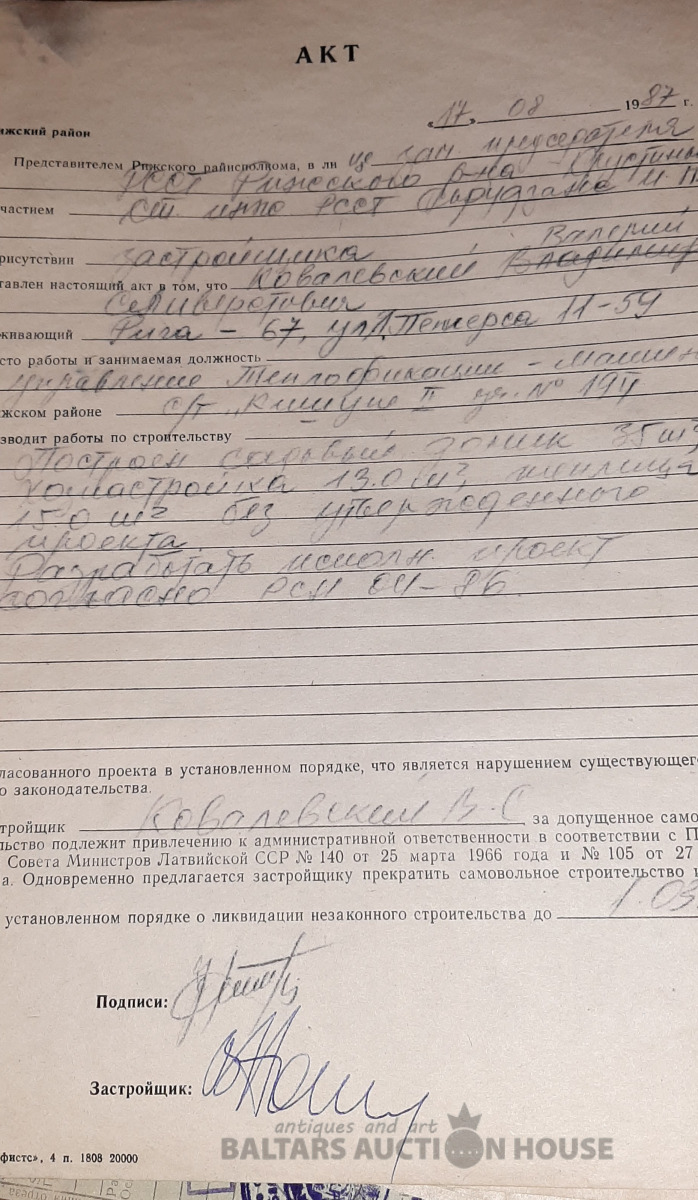 АКТ
«17» 08 1987 г.
ижский район
Представителем Рижского райисполкома, в ли це зам председателя
РССТ Рижского р-на
частием Ст. инж РССТ
рисутствии застройщика Валерий
тавлен настоящий акт в том, что Ковалевский Владимир
Селиверстович
живающий Рига – 67, ул. 11-59
сто работы и занимаемая должность
управление Теплофикации –
ижском районе с/т „ II уч. № 194
изводит работы по строительству
Построен садовый домик 35 м²
хозпостройка 13.0 м², теплица
15.0 м² без утвержденного
проекта.
Разработать исполн. проект
согласно РСН 04-86
ласованного проекта в установленном порядке, что является нарушением существующего
о законодательства.
тройщик Ковалевский В.С за допущенное само
льство подлежит привлечению к административной ответственности в соответствии с П
Совета Министров Латвийской ССР № 140 от 25 марта 1966 года и № 105 от 27
а. Одновременно предлагается застройщику прекратить самовольное строительство и
установленном порядке о ликвидации незаконного строительства до 1.03.
Подписи:
Застройщик:
antiques and art
BALTARS AUCTION HOUSE
фистс», 4 п. 1808 20000